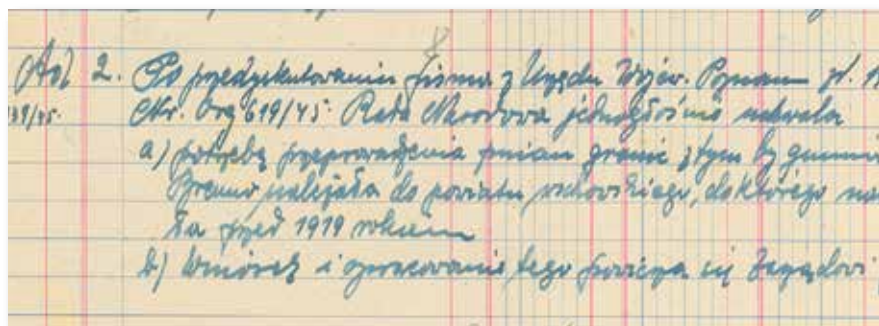 Ad 2. Po przedyskutowaniu pisma z Urzędu Wojew. Poznań
Nr. Org 619/45 Rada Narodowa jednogłośnie uchwala
139/45.
a) potrzebę przeprowadzenia zmian granic z tym by gmina
Brenno należała do powiatu wschowskiego, do którego na
ła przed 1919 rokiem
b) Wniosek i opracowanie tego povierza się Zarządowi